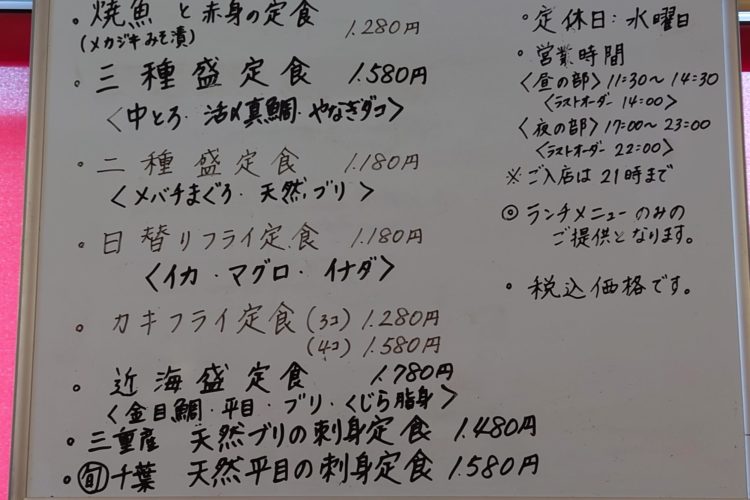 ・焼魚と赤身の定食 1.280円
(メカジキみそ漬)
・三種盛定食 1.580円
〈中とろ・活〆真鯛・やなぎダコ〉
・二種盛定食 1.180円
〈メバチまぐろ・天然ブリ〉
・日替りフライ定食 1.180円
〈イカ・マグロ・イナダ〉
・カキフライ定食(3コ) 1.280円
(4コ) 1.580円
・近海盛定食 1.780円
〈金目鯛・平目・ブリ・くじら脂身〉
・三重産 天然ブリの刺身定食 1.480円
・旬千葉 天然平目の刺身定食 1.580円
・定休日:水曜日
・営業時間
〈昼の部〉11:30〜14:30
〈ラストオーダー 14:00〉
〈夜の部〉17:00〜23:00
〈ラストオーダー 22:00〉
※ご入店は21時まで
◎ランチメニューのみの
ご提供となります。
・税込価格です。